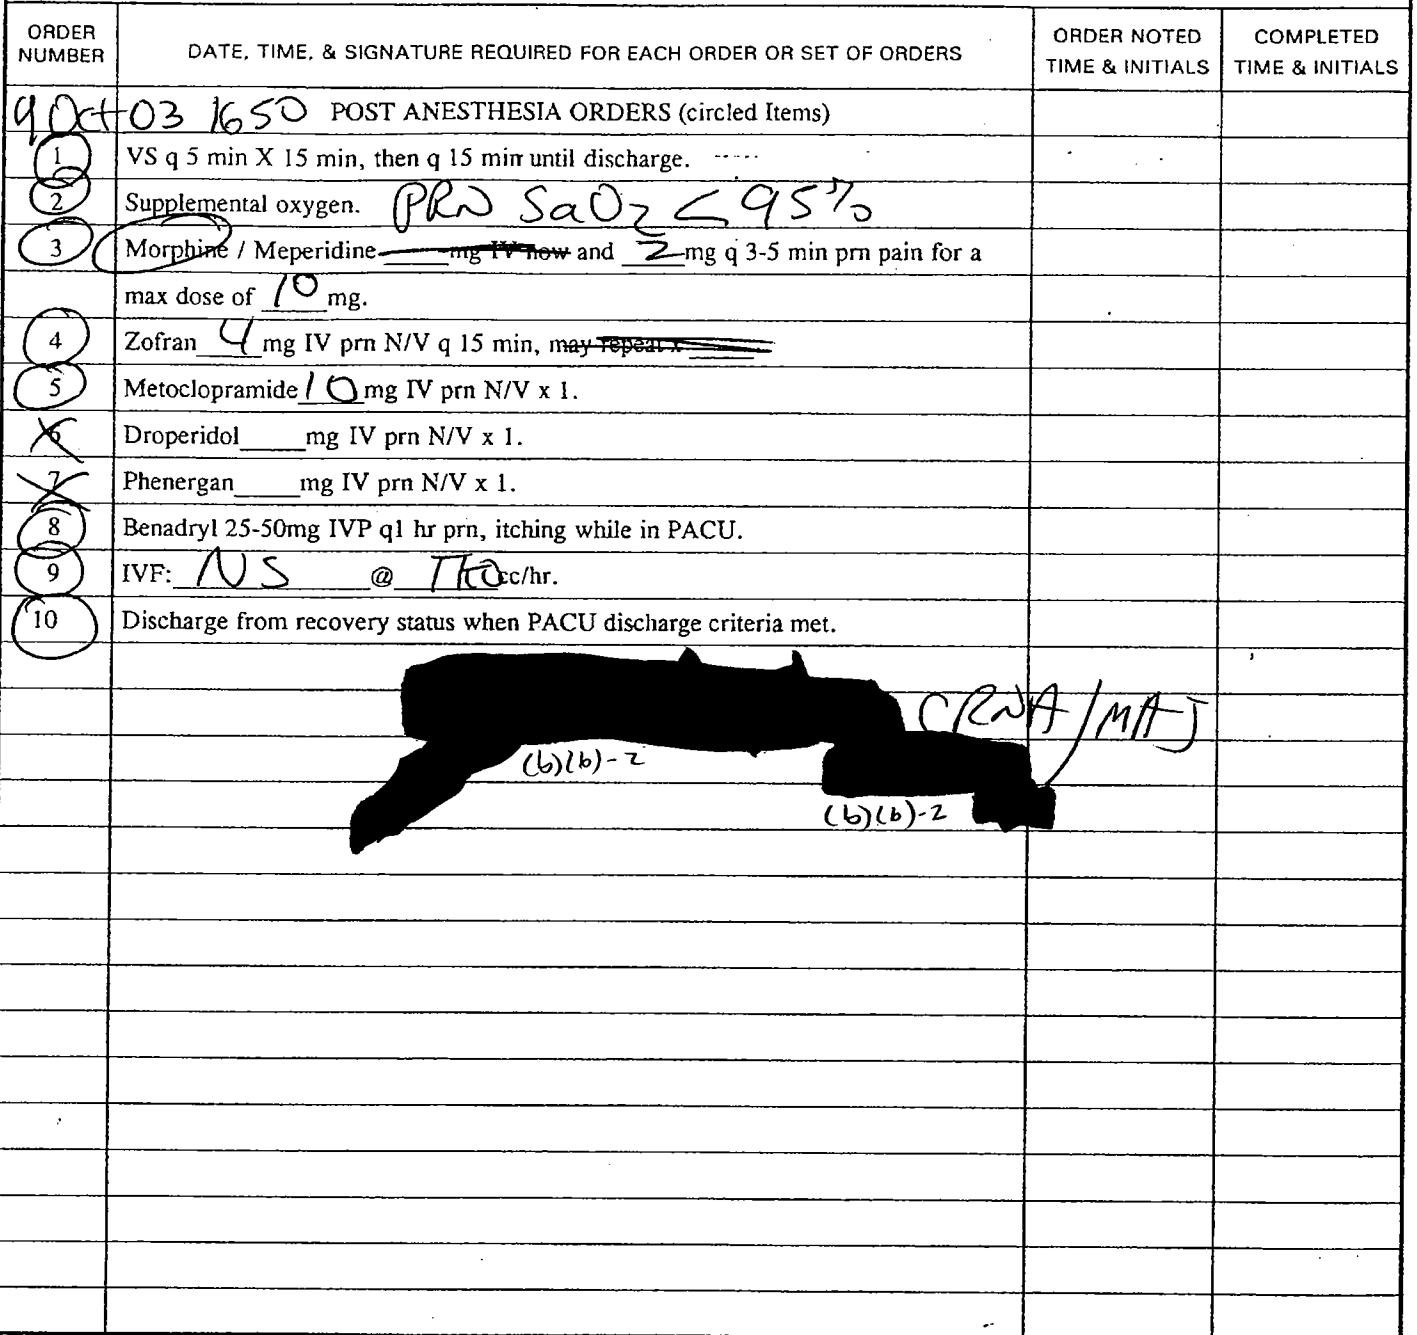 ORDER NUMBER
DATE, TIME, & SIGNATURE REQUIRED FOR EACH ORDER OR SET OF ORDERS
ORDER NOTED TIME & INITIALS
COMPLETED TIME & INITIALS
9 Oct 03 1650 POST ANESTHESIA ORDERS (circled Items)
1 VS q 5 min X 15 min, then q 15 min until discharge.
2 Supplemental oxygen. PRN SaO2 < 95%
3 Morphine / Meperidine ____ mg IV now and 2 mg q 3-5 min prn pain for a
max dose of 10 mg.
4 Zofran 4 mg IV prn N/V q 15 min, may repeat x ____
5 Metoclopramide 10 mg IV prn N/V x 1.
6 Droperidol ____ mg IV prn N/V x 1.
7 Phenergan ____ mg IV prn N/V x 1.
8 Benadryl 25-50mg IVP q1 hr prn, itching while in PACU.
9 IVF: NS @ TKO cc/hr.
10 Discharge from recovery status when PACU discharge criteria met.
CRNA/MAJ
(b)(6)-2
(b)(6)-2